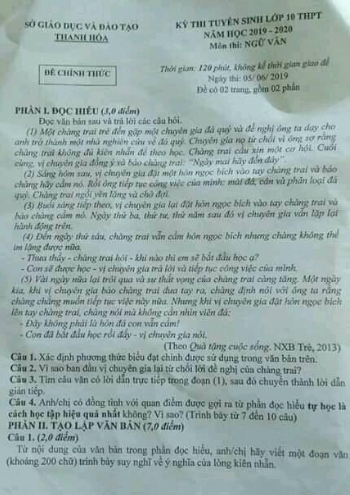 SỞ GIÁO DỤC VÀ ĐÀO TẠO
THANH HÓA
KỲ THI TUYỂN SINH LỚP 10 THPT
NĂM HỌC 2019 - 2020
Môn thi: NGỮ VĂN
ĐỀ CHÍNH THỨC
Thời gian: 120 phút, không kể thời gian giao đề
Ngày thi: 05/ 06/ 2019
Đề có 02 trang, gồm 02 phần
PHẦN I. ĐỌC HIỂU (3,0 điểm)
Đọc văn bản sau và trả lời các câu hỏi.
(1) Một chàng trai trẻ đến gặp một chuyên gia đá quý và đề nghị ông ta dạy cho
anh trở thành một nhà nghiên cứu về đá quý. Chuyên gia nọ từ chối vì ông sợ rằng
chàng trai không đủ kiên nhẫn để theo học. Chàng trai cầu xin một cơ hội. Cuối
cùng, vị chuyên gia đồng ý và bảo chàng trai: "Ngày mai hãy đến đây".
(2) Sáng hôm sau, vị chuyên gia đặt một hòn ngọc bích vào tay chàng trai và bảo
chàng hãy cầm nó. Rồi ông tiếp tục công việc của mình: mài đá, cân và phân loại đá
quý. Chàng trai ngồi yên lặng và chờ đợi.
(3) Buổi sáng tiếp theo, vị chuyên gia lại đặt hòn ngọc bích vào tay chàng trai và
bảo chàng cầm nó. Ngày thứ ba, thứ tư, thứ năm sau đó vị chuyên gia vẫn lặp lại
hành động trên.
(4) Đến ngày thứ sáu, chàng trai vẫn cầm hòn ngọc bích nhưng chàng không thể
im lặng được nữa.
- Thưa thầy - chàng trai hỏi - khi nào thì em sẽ bắt đầu học ạ?
- Con sẽ được học - vị chuyên gia trả lời và tiếp tục công việc của mình.
(5) Vài ngày nữa lại trôi qua và sự thất vọng của chàng trai càng tăng. Một ngày
kia, khi vị chuyên gia bảo chàng trai đưa tay ra, chàng định nói với ông ta rằng
chàng chẳng muốn tiếp tục việc này nữa. Nhưng khi vị chuyên gia đặt hòn ngọc bích
lên tay chàng trai, chàng nói mà không cần nhìn viên đá:
- Đây không phải là hòn đá con vẫn cầm!
- Con đã bắt đầu học rồi đấy - vị chuyên gia nói.
(Theo Quà tặng cuộc sống. NXB Trẻ, 2013)
Câu 1. Xác định phương thức biểu đạt chính được sử dụng trong văn bản trên.
Câu 2. Vì sao ban đầu vị chuyên gia lại từ chối lời đề nghị của chàng trai?
Câu 3. Tìm câu văn có lời dẫn trực tiếp trong đoạn (1), sau đó chuyển thành lời dẫn
gián tiếp.
Câu 4. Anh/chị có đồng tình với quan điểm được gợi ra từ phần đọc hiểu tự học là
cách học tập hiệu quả nhất không? Vì sao? (Trình bày từ 7 đến 10 câu)
PHẦN II. TẠO LẬP VĂN BẢN (7,0 điểm)
Câu 1. (2,0 điểm)
Từ nội dung của văn bản trong phần đọc hiểu, anh/chị hãy viết một đoạn văn
(khoảng 200 chữ) trình bày suy nghĩ về ý nghĩa của lòng kiên nhẫn.